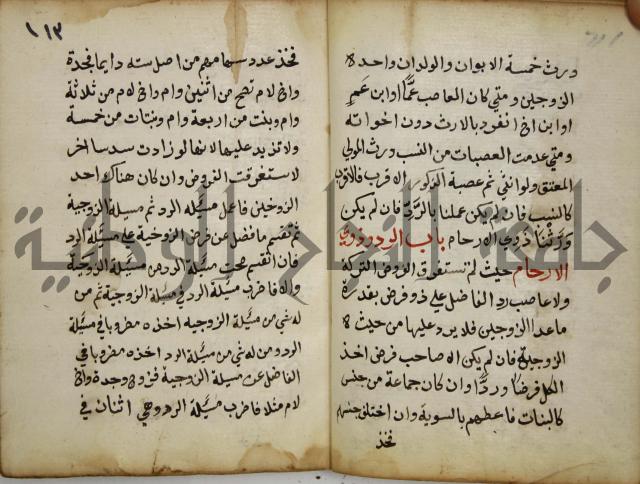 ورث خمسة الابوان والولدان واحد
الزوجين ومتى كان العاصب عمّا او ابن عمٍ
او ابن اخ انفرد بالارث دون اخواته
ومتى عدمت العصبات من النسب ورث المولى
المعتق ولو انثى ثم عصبة الذكور الاقرب فالاقرب
كالنسب فان لم يكن عملنا بالردّ فان لم يكن
ورّثنا ذوى الارحام باب الرد وذوي
الارحام حيث لم تستغرق الفروض التركة
ولا عاصب رد الفاضل على ذو فرض بقدره
ما عدا الزوجين فلا يرد عليهما من حيث
الزوجية فان لم يكن الا صاحب فرض اخذ
الكل فرضا وردًّا وان كان جماعة من جنس
كالبنات فاعطهم بالسوية وان اختلف جنسهم
فخذ
١١٣
فخذ عدد سهامهم من اصل ستة دايما فجدة
واخ لام تصح من اثنين وام واخ لام من ثلاثة
وام وبنت من اربعة وام وبنتان من خمسة
ولا تزيد عليها لانها لو زادت سدسا اخر
لاستغرقت الفروض وان كان هناك احد
الزوجين فاعمل مسيلة الرد ثم مسيلة الزوجية
ثم تقسم ما فضل عن فرض الزوجية على مسيلة الرد
فان انقسم صحت مسيلة الرد من مسيلة الزوجية
والا فاضرب مسيلة الرد في مسيلة الزوجية ثم من
له شي من مسيلة الزوجيه اخذه مضروبا في مسيلة
الرد ومن له شي من مسيلة الرد اخذه مضروبا في
الفاضل عن مسيلة الزوجية فزوج وجدة واخ
لام مثلا فاضرب مسيلة الرد وهي اثنان في
جامعة النجاح الوطنية